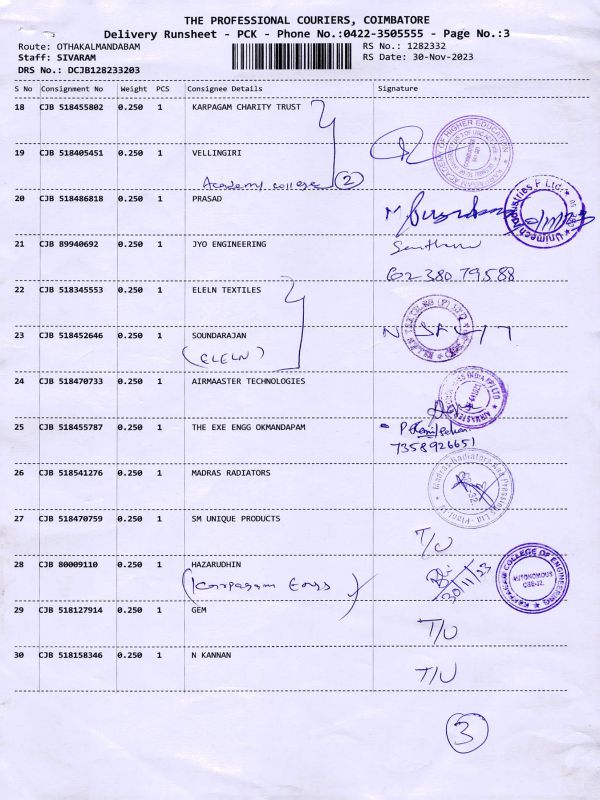 THE PROFESSIONAL COURIERS, COIMBATORE
Delivery Runsheet - PCK - Phone No.:0422-3505555 - Page No.:3
Route: OTHAKALMANDABAM RS No.: 1282332
Staff: SIVARAM RS Date: 30-Nov-2023
DRS No.: DCJB128233203
S No Consignment No Weight PCS Consignee Details Signature
18 CJB 518455802 0.250 1 KARPAGAM CHARITY TRUST
19 CJB 518405451 0.250 1 VELLINGIRI
Academy college 2
20 CJB 518486818 0.250 1 PRASAD
Unimech Industries P Ltd.
21 CJB 89940692 0.250 1 JYO ENGINEERING
22 CJB 518345553 0.250 1 ELELN TEXTILES
23 CJB 518452646 0.250 1 SOUNDARAJAN
(ELELN)
24 CJB 518470733 0.250 1 AIRMAASTER TECHNOLOGIES
25 CJB 518455787 0.250 1 THE EXE ENGG OKMANDAPAM
7358926651
26 CJB 518541276 0.250 1 MADRAS RADIATORS
Madras Radiators And Pressings Ltd.
27 CJB 518470759 0.250 1 SM UNIQUE PRODUCTS
T/U
28 CJB 80009110 0.250 1 HAZARUDHIN
(Karpagam Engg)
30/11/23
KARPAGAM COLLEGE OF ENGINEERING
AUTONOMOUS
29 CJB 518127914 0.250 1 GEM
T/U
30 CJB 518158346 0.250 1 N KANNAN
T/U
3